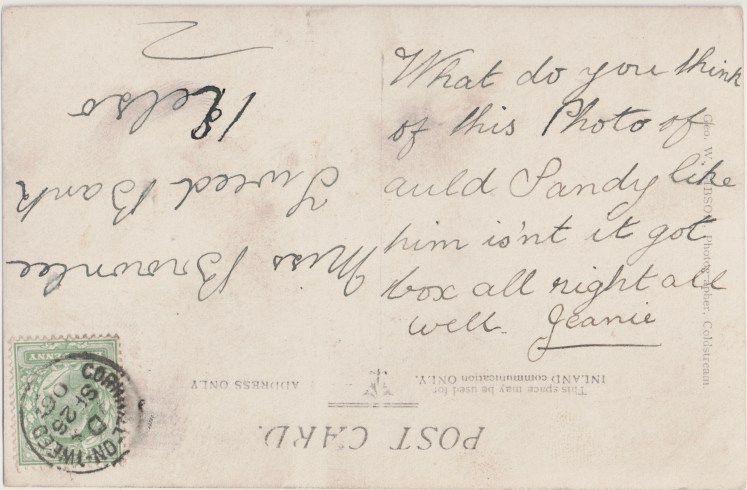 What do you think
of this Photo of
auld Sandy like
him is'nt it got
box all right all
well. Jeanie
Miss Brownlee
Tweed Bank
Kelso
POST CARD.
This space may be used for
INLAND communication ONLY.
ADDRESS ONLY
Geo. W. GIBSON, Photographer, Coldstream.
PENNY
CORNHILL-ON-TWEED
D
SP 26